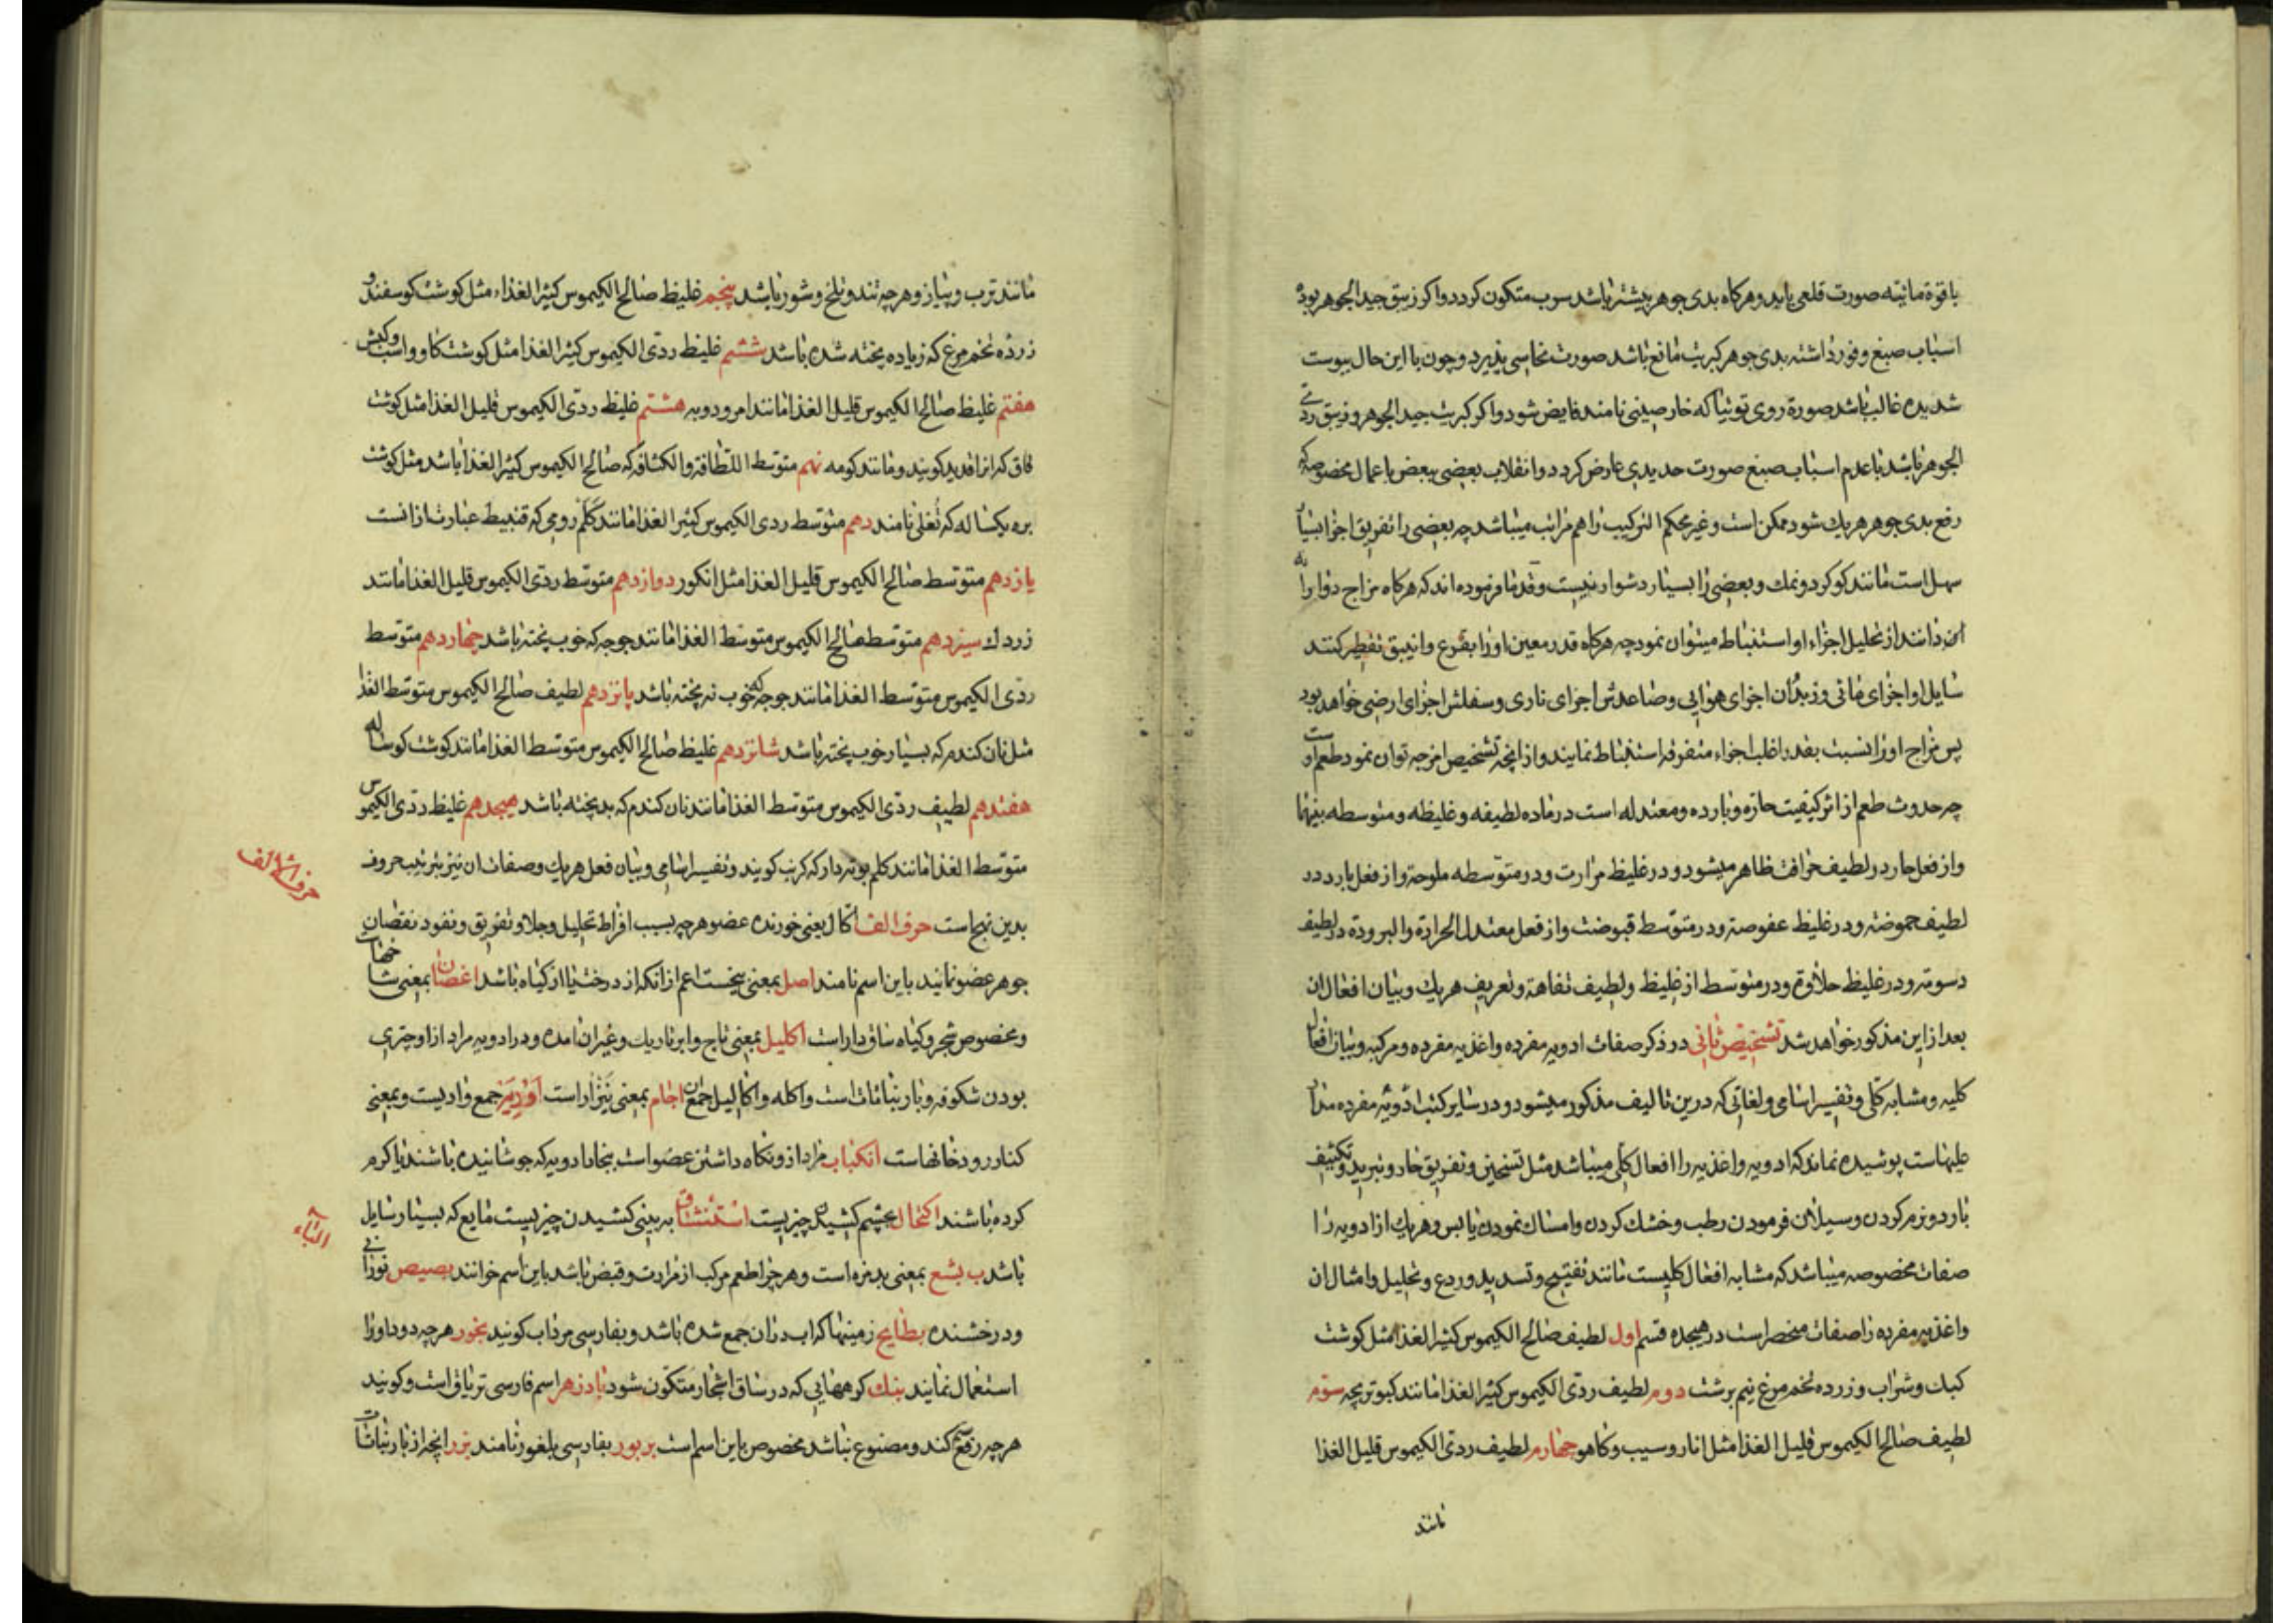 باقوة مائیته صورت قلعی یابد و هرکاه بدی جوهر بیشتر باشد سرب متکون کردد و اکر زیبق جید الجوهر بوده
اسباب صبغ وفور داشته بدی جوهر کبریت مانع باشد صورت نحاسی پذیرد و چون با این حال یبوست
شدیده غالب باشد صورة روی توتیا که خارصینی نامند فایض شود و اکر کبریت جید الجوهر و زیبق ردی
الجوهر باشد با عدم اسباب صبغ صورت حدیدی عارض کردد و انقلاب بعضی ببعض باعمال مخصوصه که
رفع بدی جوهر هریك شود ممکن است و غیر محکم الترکیب را هم مراتب میباشد چه بعضی را تفریق اجزا بسیار
سهل است مانند کوکرد و نمك و بعضی را بسیار دشوار نیست و قدما فرموده اند که هرکاه مزاج دوا را
از تحلیل اجزاء او استنباط میتوان نمود چه هرکاه قدر معین او را بقرع و انبیق تقطیر کنند
سایل او اجزای مائی و زبدان اجزای هوایی و صاعدش اجزای ناری و سفلش اجزای ارضی خواهد بود
پس مزاج او را نسبت بقدر اغلب اجزاء متفرقه استنباط نمایند و از انچه تشخیص امزجه توان نمود طعم است
چه حدوث طعم از اثر کیفیت حاره و بارده و معتدله است در ماده لطیفه و غلیظه و متوسطه بینهما
و از فعل حار در لطیف حرافت ظاهر میشود و در غلیظ مرارت و در متوسطه ملوحة و از فعل بارد در
لطیف حموضة و در غلیظ عفوصة و در متوسط قبوضت و از فعل معتدل الحرارة والبرودة در لطیف
دسومة و در غلیظ حلاوة و در متوسط از غلیظ و لطیف تفاهة و تعریف هریك و بیان افعال ان
بعد از این مذکور خواهد شد تشخیص ثانی در ذکر صفات ادویه مفرده و اغذیه مفرده و مرکبه و بیان افعال
کلیه و مشابه کلی و تفسیر اسامی و لغاتی که درین تالیف مذکور میشود و در سایر کتب ادویه مفرده مدار
علیهاست پوشیده نماند که ادویه و اغذیه را افعال کلی میباشد مثل تسخین و تفریق حار و تبرید و تکثیف
بارد و نرم کردن و سیلان فرمودن رطب و خشك کردن و امساك نمودن یابس و هریك از ادویه را
صفات مخصوصه میباشد که مشابه افعال کلیست مانند تفتیح و تسدید و ردع و تحلیل و امثال ان
و اغذیه مفرده را صفات منحصر است در هیجده قسم اول لطیف صالح الکیموس کثیر الغذا مثل کوشت
کبك و شراب و زرده تخم مرغ نیم برشت دوم لطیف ردی الکیموس کثیر الغذا مانند کبوتر بچه سوم
لطیف صالح الکیموس قلیل الغذا مثل انار و سیب و کاهو چهارم لطیف ردی الکیموس قلیل الغذا
مانند
مانند ترب و پیاز و هرچه تند و تلخ و شور باشد پنجم غلیظ صالح الکیموس کثیر الغذاء مثل کوشت کوسفند و
زرده تخم مرغ که زیاده پخته شده باشد ششم غلیظ ردی الکیموس کثیر الغذا مثل کوشت کاو و اسب و کبش
هفتم غلیظ صالح الکیموس قلیل الغذا مانند امرود و به هشتم غلیظ ردی الکیموس قلیل الغذا مثل کوشت
قاق که انرا قدید کویند و مانند کومه نهم متوسط اللطافة والکثافه که صالح الکیموس کثیر الغذا باشد مثل کوشت
بره یکساله که ثغلی نامند دهم متوسط ردی الکیموس کثیر الغذا مانند کلم رومی که قنبیط عبارت از انست
یازدهم متوسط صالح الکیموس قلیل الغذا مثل انکور دوازدهم متوسط ردی الکیموس قلیل الغذا مانند
زردك سیزدهم متوسط صالح الکیموس متوسط الغذا مانند جوجه که خوب پخته باشد چهاردهم متوسط
ردی الکیموس متوسط الغذا مانند جوجه که خوب نه پخته باشد پانزدهم لطیف صالح الکیموس متوسط الغذا
مثل نان کندم که بسیار خوب پخته باشد شانزدهم غلیظ صالح الکیموس متوسط الغذا مانند کوشت کوساله
هفندهم لطیف ردی الکیموس متوسط الغذا مانند نان کندم که بد پخته باشد هیجدهم غلیظ ردی الکیموس
متوسط الغذا مانند کلم بوته دار که کرنب کویند و تفسیر اسامی و بیان فعل هریك و صفات ان نیز بترتیب حروف
بدین نهج است حرف الف اکال یعنی خورنده عضو هرچه بسبب افراط تحلیل و جلا و تفریق و نفوذ نقصان
جوهر عضو نمایند باین اسم نامند اصل بمعنی بیخست اعم از انکه از درخت یا از کیاه باشد اغصان بمعنی شاخهاست
و مخصوص شجر و کیاه ساق دار است اکلیل بمعنی تاج و ابر تاریك و غیر ان امده و در ادویه مراد از او چتری
بودن شکوفه و بار نباتات است و اکله و اکالیل جمع ان اجام بمعنی نیزار است اودیه جمع وادیست و بمعنی
کنار رودخانهاست انکباب مراد از و نکاه داشتن عضو است ببخار ادویه که جوشانیده باشند یا کرم
کرده باشند اکتحال بچشم کشیدن چیزیست استنشاق به بینی کشیدن چیزیست مایع که بسیار سایل
باشد ب بشع بمعنی بدمزه است و هرچرا طعم مرکب از مرارت و قبض باشد باین اسم خوانند بصیص نورانی
و درخشنده بطایح زمینها که اب در ان جمع شده باشد و بفارسی مرداب کویند بخور هرچه دود او را
استعمال نمایند بنك کرههایی که در ساق اشجار متکون شود بادزهر اسم فارسی تریاق است و کویند
هرچه رفع سم کند و مصنوع نباشد مخصوص باین اسم است بربور بفارسی بلغور نامند بزر انچه از بار نباتات
حرف الالف
الباء